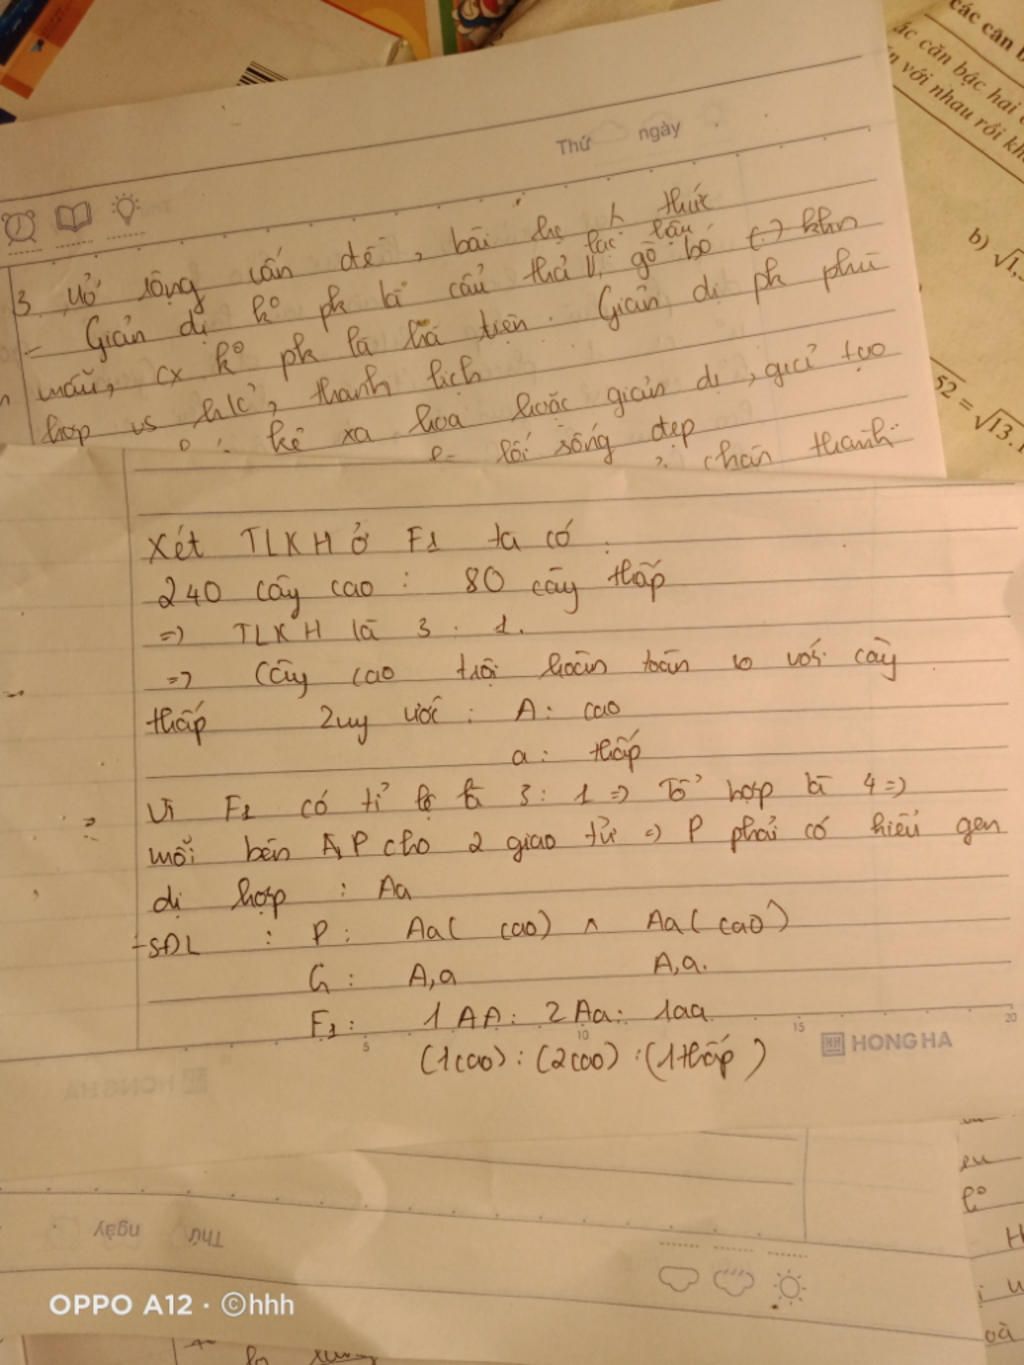 các căn b
ác căn bậc hai
n với nhau rồi kh
b) √1,
52 = √13.1
Thứ ngày
3 Mở rộng vấn đề, bài học nhận thức
- Giản dị ko phải là cẩu thả, gò bó khuôn
mẫu, cx ko phải là hà tiện. Giản dị ph phù
hợp vs h/c, thanh lịch
kẻ xa hoa hoặc giản dị, giả tạo
lối sống đẹp
chân thành
Xét TLKH ở F1 ta có:
240 cây cao : 80 cây thấp
=> TLKH là 3 : 1.
=> Cây cao trội hoàn toàn so với cây
thấp Quy ước : A: cao
a: thấp
Vì F1 có tỉ lệ là 3 : 1 => Tổ hợp là 4 =>
mỗi bên P cho 2 giao tử => P phải có kiểu gen
dị hợp : Aa
- SĐL : P: Aa (cao) x Aa (cao)
G: A,a A,a.
F1: 1AA: 2Aa: 1aa
(1cao) : (2cao) : (1thấp)
5 10 15 20
HONG HA
Thứ ngày
OPPO A12 · ©hhh